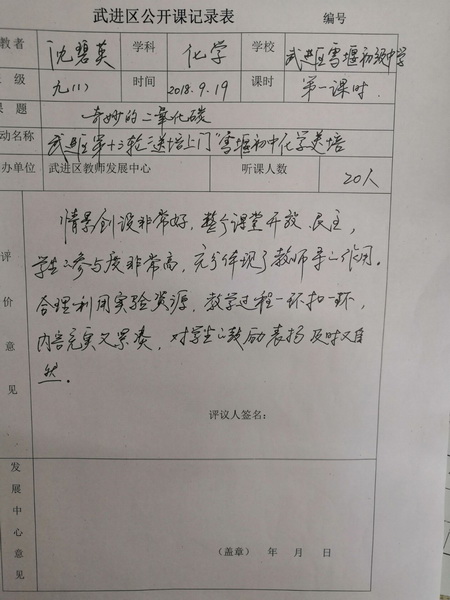 武进区公开课记录表 编号
教者 沈碧英 学科 化学 学校 武进区雪堰初级中学
级 九(1) 时间 2018.9.19 课时 第一课时
课题 奇妙的二氧化碳
动名称 武进区第十三轮"送培上门"雪堰初中化学送培
办单位 武进区教师发展中心 听课人数 20人
评价意见
情景创设非常好,整个课堂开放、民主,
学生的参与度非常高,充分体现了教师导的作用。
合理利用实验资源,教学过程一环扣一环,
内容充实又紧凑,对学生的鼓励表扬及时又自
然.
评议人签名:
发展中心意见
(盖章) 年 月 日